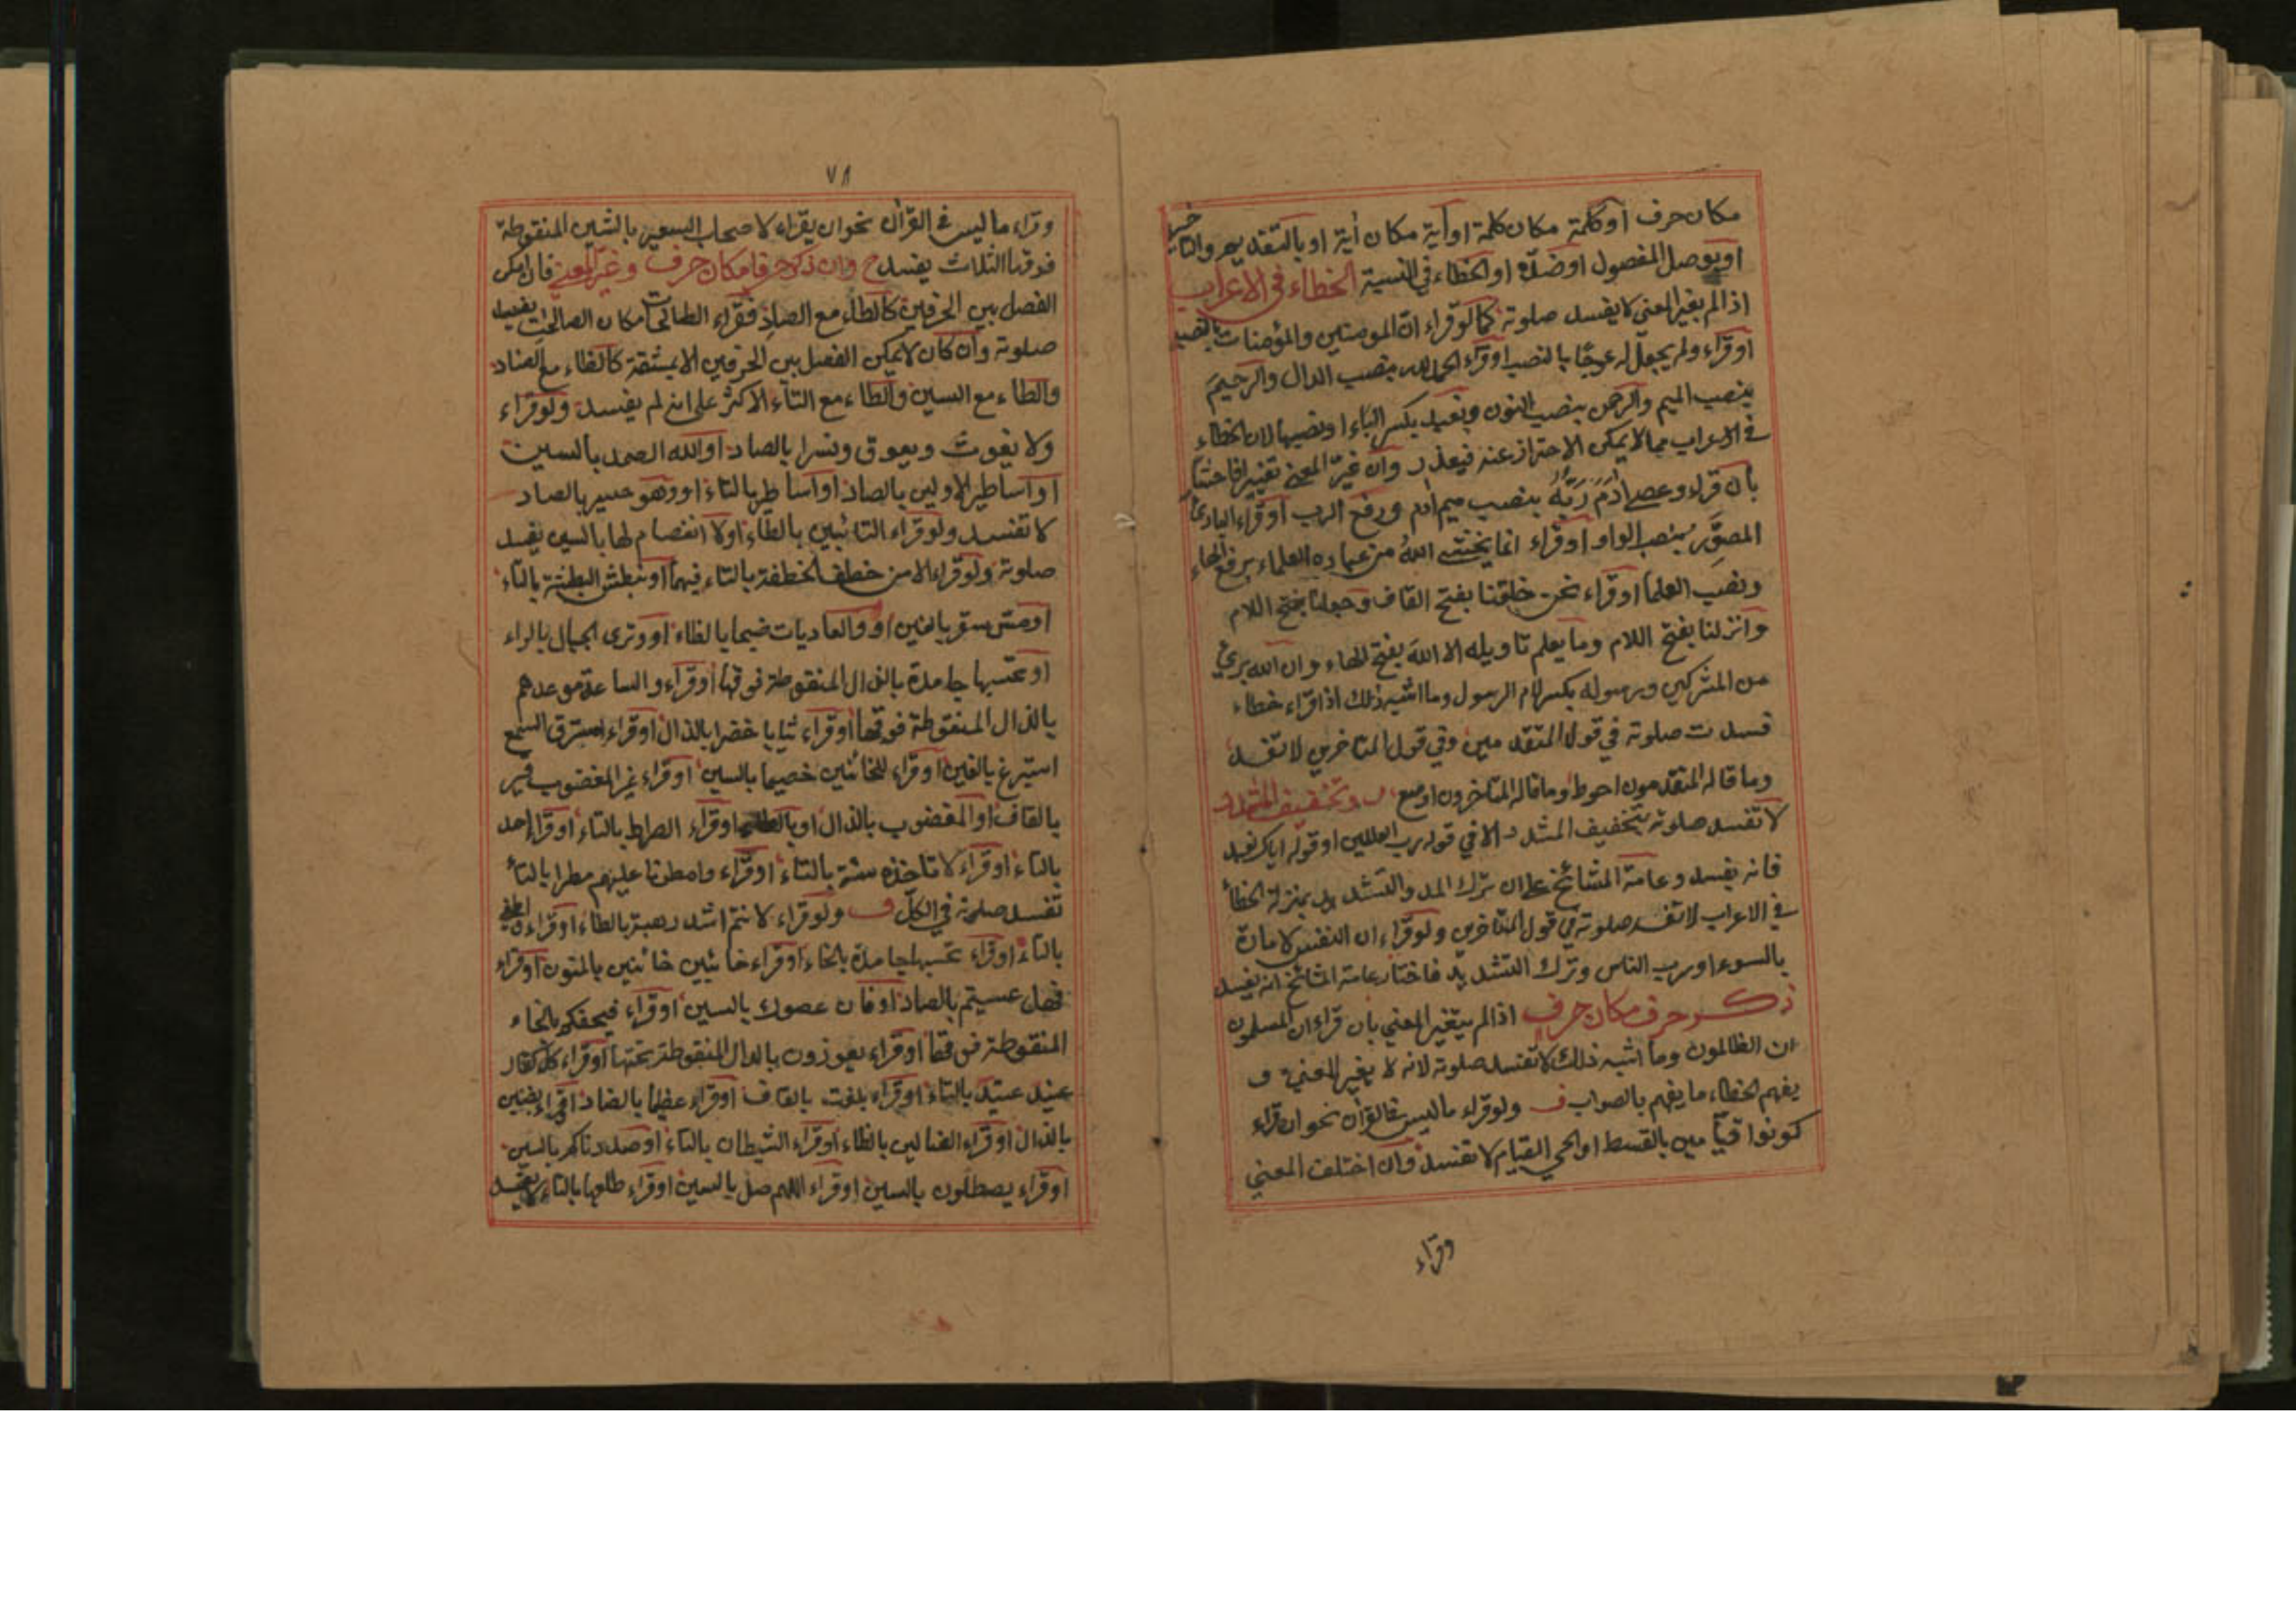 مكان حرف او كلمة مكان كلمة او آية مكان آية او بالتقديم والتاخير
او بوصل المفصول او ضده او الخطاء في النسبة الخطاء في الاعراب
اذا لم يغير المعنى لا يفسد صلوته كما لو قراء ان المومنين والمؤمنات بالنصب
او قراء ولم يجعل له عوجا بالنصب او قراء الحمد لله بنصب الدال والرحيم
بنصب الميم والرحمن بنصب النون ونعبد بكسر الباء او نصبها لان الخطاء
في الاعراب مما لا يمكن الاحتراز عنه فيعذر وان غير المعنى تغييرا فاحشا
بان قراء وعصى ادم ربه بنصب ميم ادم ورفع الرب او قراء البارئ
المصور بنصب الواو او قراء انما يخشى الله من عباده العلماء برفع الهاء
ونصب العلما او قراء نحن خلقنا بفتح القاف وجعلنا بفتح اللام
وانزلنا بفتح اللام وما يعلم تاويله الا الله بفتح الهاء وان الله برئ
من المشركين ورسوله بكسر لام الرسول وما اشبه ذلك اذا قراء خطاء
فسدت صلوته في قول المتقدمين وفي قول المتاخرين لا تفسد
وما قاله المتقدمون احوط وما قاله المتاخرون اوسع وتخفيف المشدد
لا تفسد صلوته بتخفيف المشدد الا في قوله رب العلمين او قوله اياك نعبد
فانه يفسد وعامة المشائخ على ان ترك المد والتشديد بمنزلة الخطأ
في الاعراب لا تفسد صلوته في قول المتاخرين ولو قراء ان النفس لامارة
بالسوء او رب الناس وترك التشديد فاختار عامة المشائخ انه يفسد
ذكر حرف مكان حرف اذا لم يتغير المعني بان قراء ان المسلمون
ان الظالمون وما اشبه ذلك لا تفسد صلوته لانه لا يغير المعني و
يفهم الخطاء ما يفهم بالصواب ف ولو قراء ما ليس في القرآن نحو ان قراء
كونوا قيامين بالقسط او الحي القيام لا تفسد وان اختلف المعني
وقراء
٧٨
وقراء ما ليس في القرآن نحو ان يقراء لاصحاب السعير بالشين المنقوطة
فوقها الثلاث يفسد ح وان ذكر حرفا مكان حرف وغير المعنى فان امكن
الفصل بين الحرفين كالطاء مع الصاد فقراء الطالحات مكان الصالحات يفسد
صلوته وان كان لا يمكن الفصل بين الحرفين الا بمشقة كالظاء مع الضاد
والطاء مع السين والطاء مع التاء الاكثر على انه لم يفسد ولو قراء
ولا يغوث ويعوق ونسرا بالصاد او الله الصمد بالسين
او اساطير الاولين بالصاد او اساطير بالتاء او وهو حسير بالصاد
لا تفسد ولو قراء التائبين بالطاء او لا انفصام لها بالسين يفسد
صلوته ولو قراء الا من خطف الخطفة بالتاء فيهما او نبطش البطشة بالتاء
او مس سقر بالغين او والعاديات ضبحا بالظاء او وترى الجبال بالراء
او تحسبها جامدة بالذال المنقوطة فوقها او قراء والساعة موعدهم
بالذال المنقوطة فوقها او قراء ثيابا خضرا بالذال او قراء استرق السمع
استرغ بالغين او قراء للخائنين خصيما بالسين او قراء غير المغضوب
بالقاف او المغضوب بالذال او بالظاء او قراء الصراط بالتاء او قراء احد
بالتاء او قراء لا تاخذه سنة بالتاء او قراء وامطرنا عليهم مطرا بالتاء
تفسد صلوته في الكل ف ولو قراء لانتم اشد رهبة بالطاء او قراء
بالتاء او قراء تحسبها جامدة بالخاء او قراء خائبين خائنين بالنون او قراء
فهل عسيتم بالصاد او فان عصوك بالسين او قراء فيحفكم بالخاء
المنقوطة فوقها او قراء يعوذون بالدال المنقوطة تحتها او قراء كل كفار
عنيد عتيد بالتاء او قراء بلغت بالقاف او قراء عظيما بالضاد
بالذال او قراء الضالين بالظاء او قراء الشيطان بالتاء او صددناكم بالسين
او قراء يصطلون بالسين او قراء اللهم صل بالسين او قراء طلعها بالتاء لا يفسد